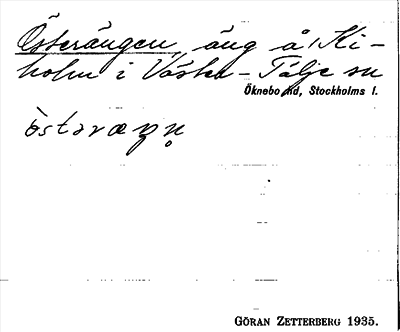 Österängen, äng å Ki-
holm i Väster-Tälje sn
Öknebo hd, Stockholms l.
GÖRAN ZETTERBERG 1935.